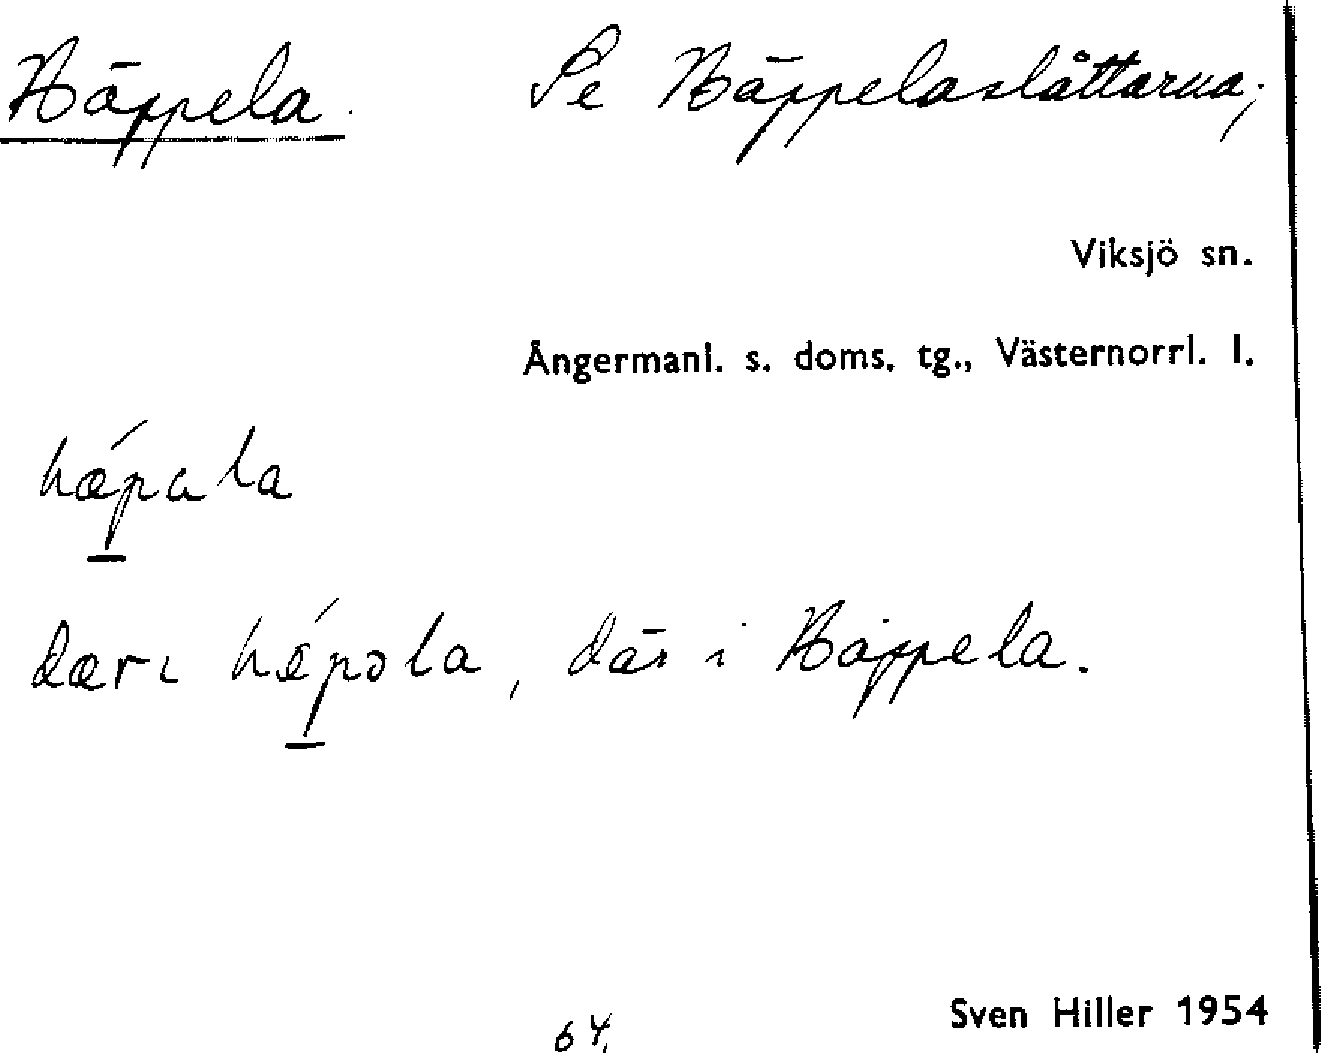 Häppela. Se Häppelaslåttarna;
Viksjö sn.
Ångermanl. s. doms. tg., Västernorrl. l.
hǽpala
dær ɩ hǽpəla, där i Häppela.
64. Sven Hiller 1954